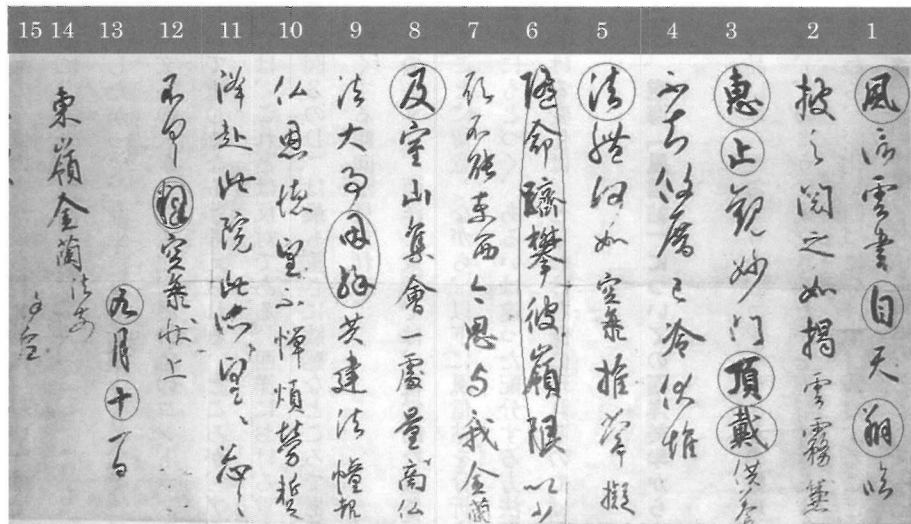 15 14 13 12 11 10 9 8 7 6 5 4 3 2 1
風信雲書自天翔臨
披之閲之如掲雲霧兼
惠止觀妙門頂戴供養
不知攸厝已冷伏惟
法體何如空海推常擬
隨命躋攀彼嶺限以少
願不能東西今思与我金蘭
及室山集會一處量商仏
法大事因縁共建法幢報
仏恩徳望不憚煩勞蹔
降赴此院此所望〻忩〻
不具釋空海状上
九月十一日
東嶺金蘭法前
謹空